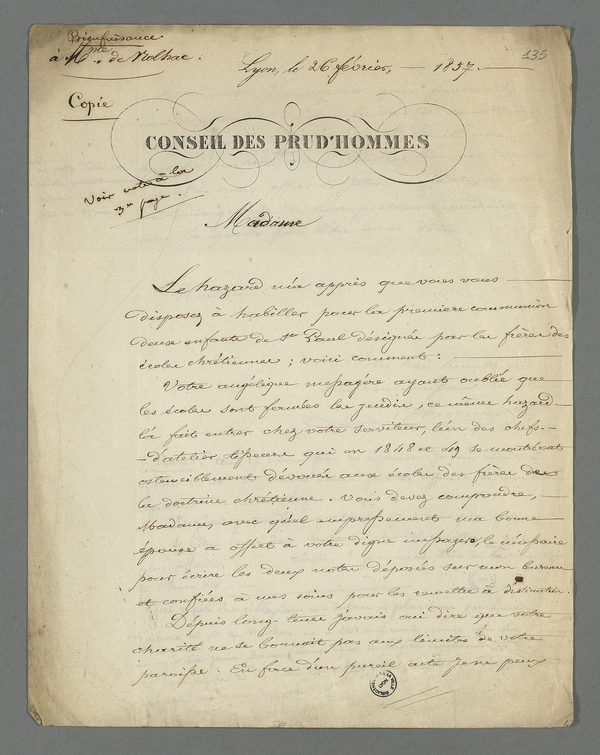 Bienfaisance
à Mme de Nolhac.
135
Lyon, le 26 février, — 1857.
Copie
CONSEIL DES PRUD'HOMMES
Voir note à la
3e page.
Madame
Le hazard m'a appris que vous vous
disposez à habiller pour la premiere communion
deux enfants de St Paul désignée par les frères des
écoles chrétiennes ; voici comment :
Votre angélique messagère ayant oublié que
les écoles sont fermées les jeudis, ce même hazard
l'a fait entrer chez votre serviteur, l'un des chefs-
-d'atelier tisseurs qui en 1848 et 49 se montrèrent
ostensiblement dévoués aux écoles des frères de
la doctrine chrétienne. Vous devez comprendre,
Madame, avec quel empressement ma bonne
épouse a offert à votre digne messagère, le nécessaire
pour écrire les deux notes déposées sur mon bureau
et confiées à mes soins pour les remettre à destination.
Depuis long-tems j'avais ouï dire que votre
charité ne se bornait pas aux limites de votre
paroisse. En face d'un pareil acte je ne peux